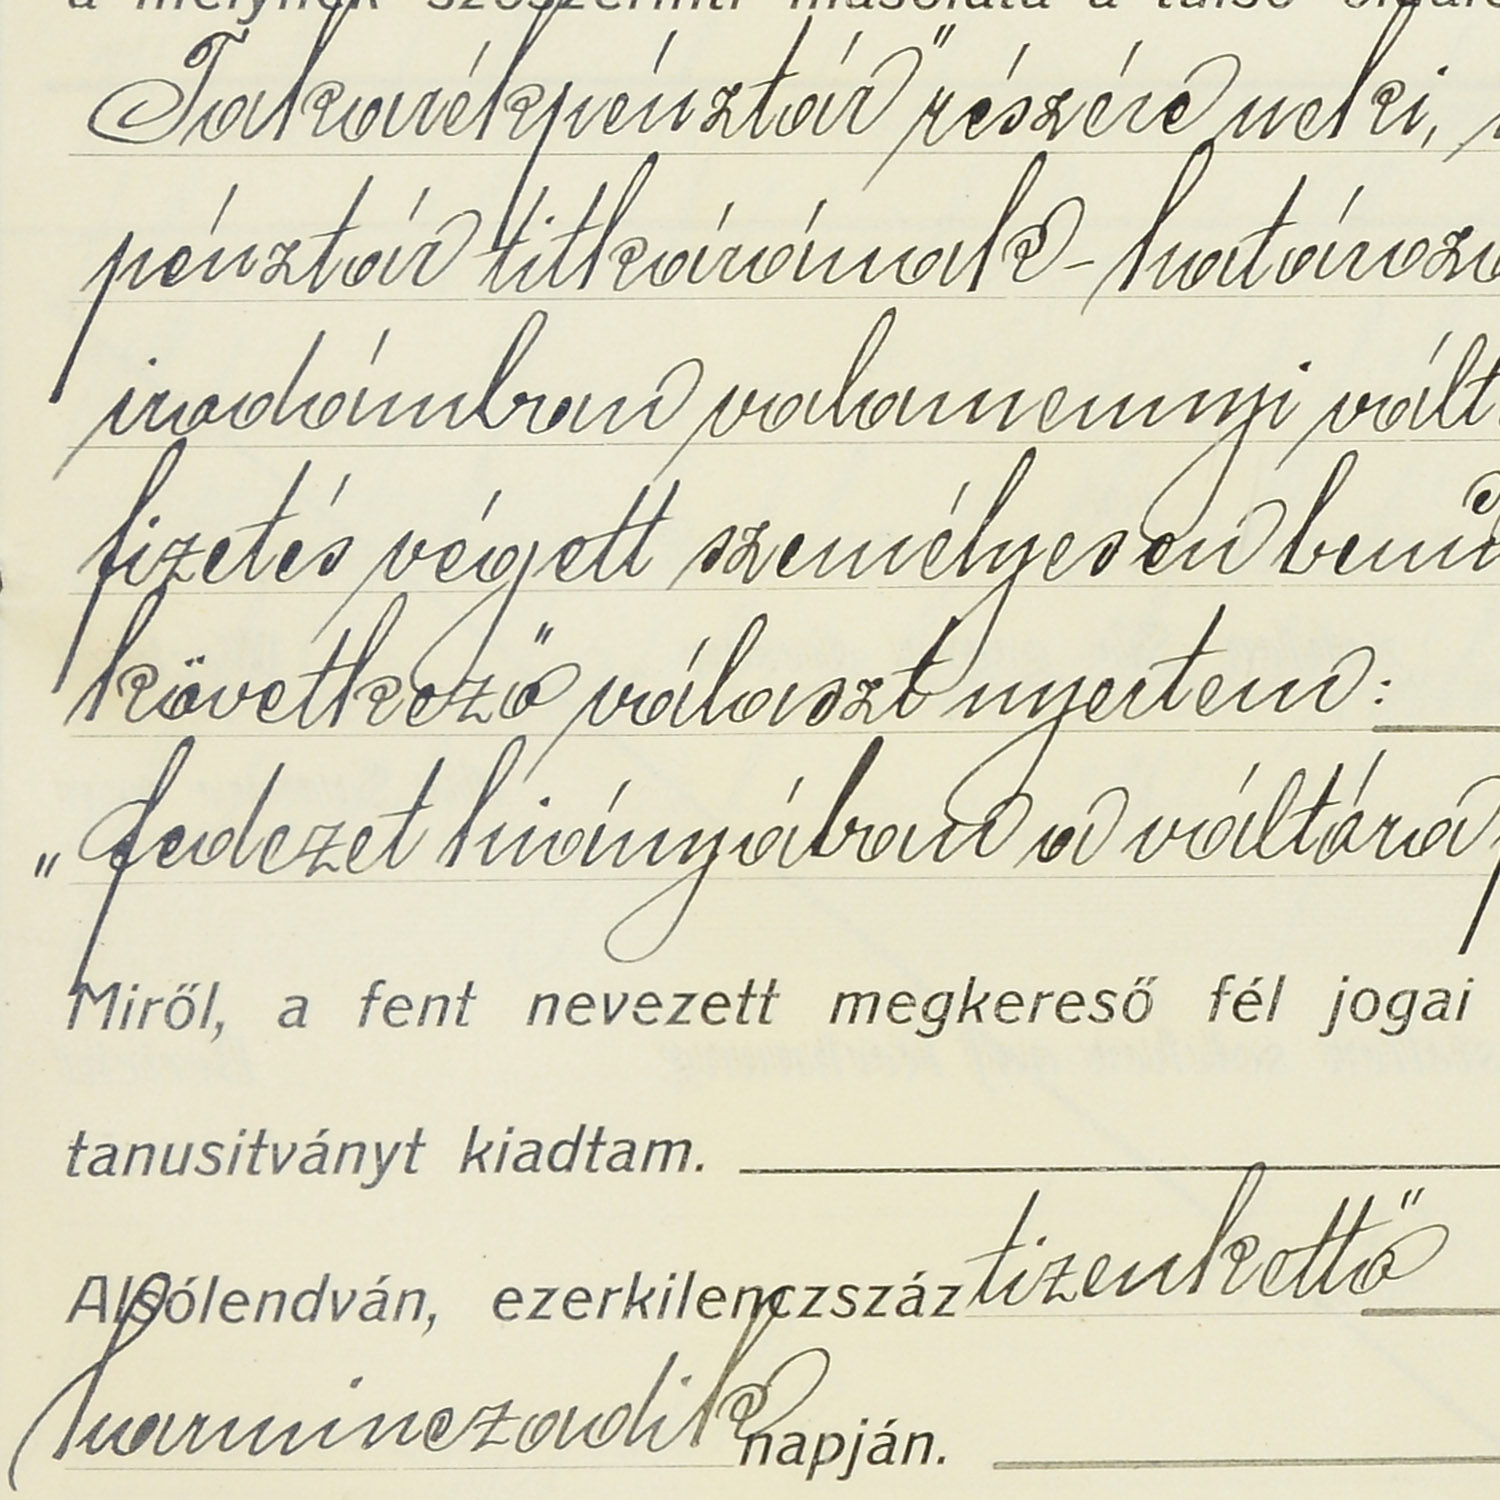 a melynek szószerinti másolata a túlsó
Takarékpénztár" részére neki,
pénztár titkárának - határozo
irodámban valamennyi vált
fizetés végett személyesen
következő választ nyertem:
„fedezet hiányában a váltóra
Miről, a fent nevezett megkereső fél jogai
tanusitványt kiadtam.
Alsólendván, ezerkilenczszáz tizenkettő
harminczadik napján.